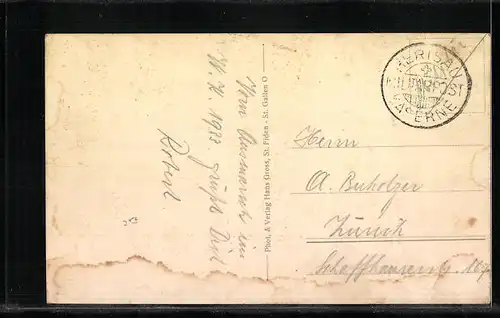 Vom Ausmarsch im
W. K. 1933 grüsst Dich
Robert.
Phot. & Verlag Hans Gross, St. Fiden - St. Gallen O
HERISAU
MILITÄRPOST
KASERNE
Herrn
A. Buholzer
Zürich
Schaffhauserstr.